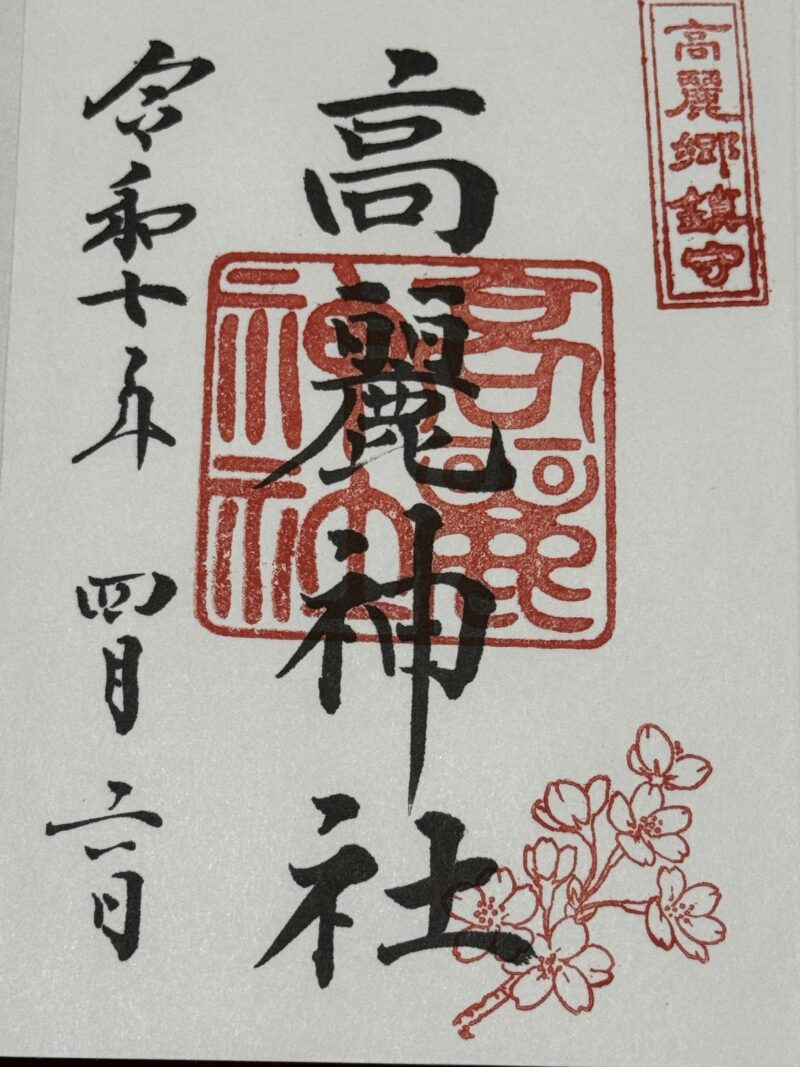 高麗郷鎮守
高麗神社
高麗
神社
令和十年 四月六日